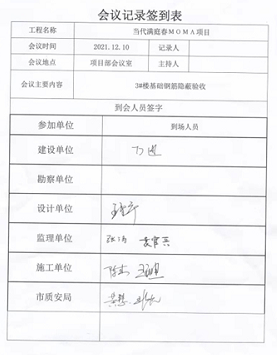 会议记录签到表
工程名称 当代满庭春MOMA项目
会议时间 2021.12.10 记录人
会议地点 项目部会议室 主持人
会议主要内容 3#楼基础钢筋隐蔽验收
到会人员签字
参加单位 到场人员
建设单位
勘察单位
设计单位
监理单位
施工单位
市质安局